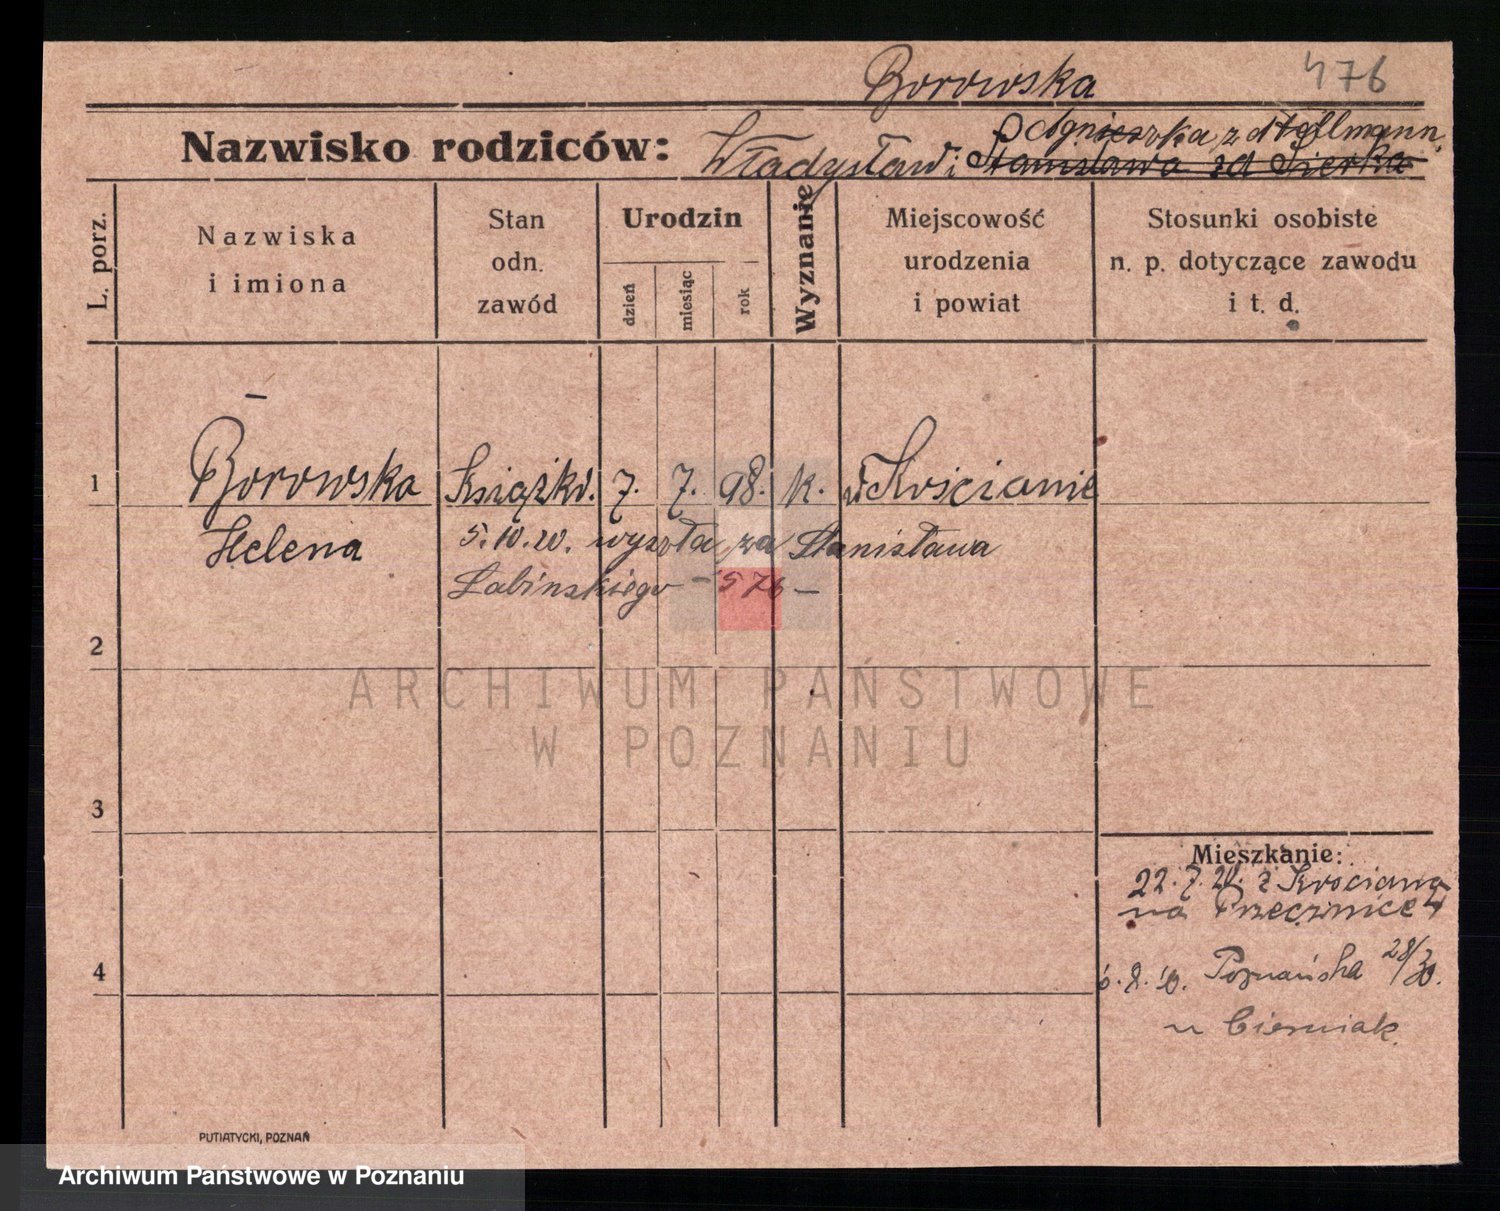 Borowska 476
Nazwisko rodziców: Władysław i Agnieszka z d
Stanisława zd Sierka
L. porz.
Nazwiska i imiona
Stan odn. zawód
Urodzin
dzień miesiąc rok
Wyznanie
Miejscowość urodzenia i powiat
Stosunki osobiste n. p. dotyczące zawodu i t. d.
1 Borowska Książkow. 7. 7. 98. k. w Kościanie
Helena 5.10.20. wyszła za Stanisława
Łabinskiego – 576 –
2
3
4
Mieszkanie:
22.7.20. z Kościana
na Przecznice 4
Poznańska 28/30.
u Cierniak
PUTIATYCKI, POZNAŃ
ARCHIWUM PAŃSTWOWE
W POZNANIU
Archiwum Państwowe w Poznaniu